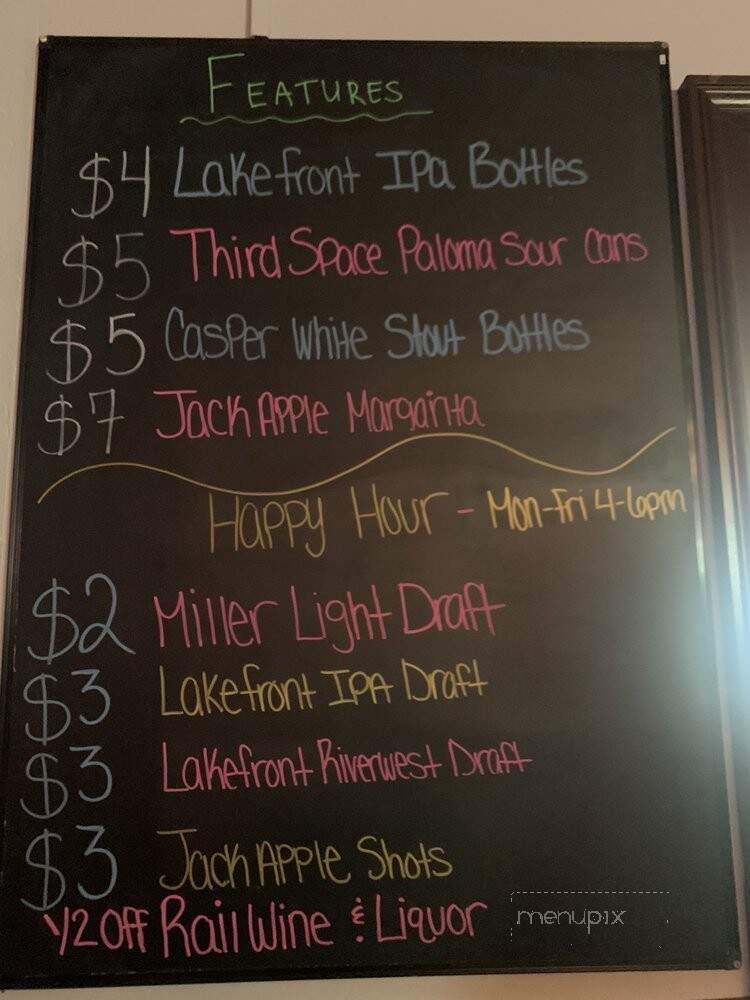 FEATURES
$4 Lakefront IPa Bottles
$5 Third Space Paloma Sour Cans
$5 Casper White Stout Bottles
$7 Jack Apple Margarita
Happy Hour - Mon-Fri 4-6pm
$2 Miller Light Draft
$3 Lakefront IPA Draft
$3 Lakefront Riverwest Draft
$3 Jack Apple Shots
1/2 Off Rail Wine & Liquor
menupix